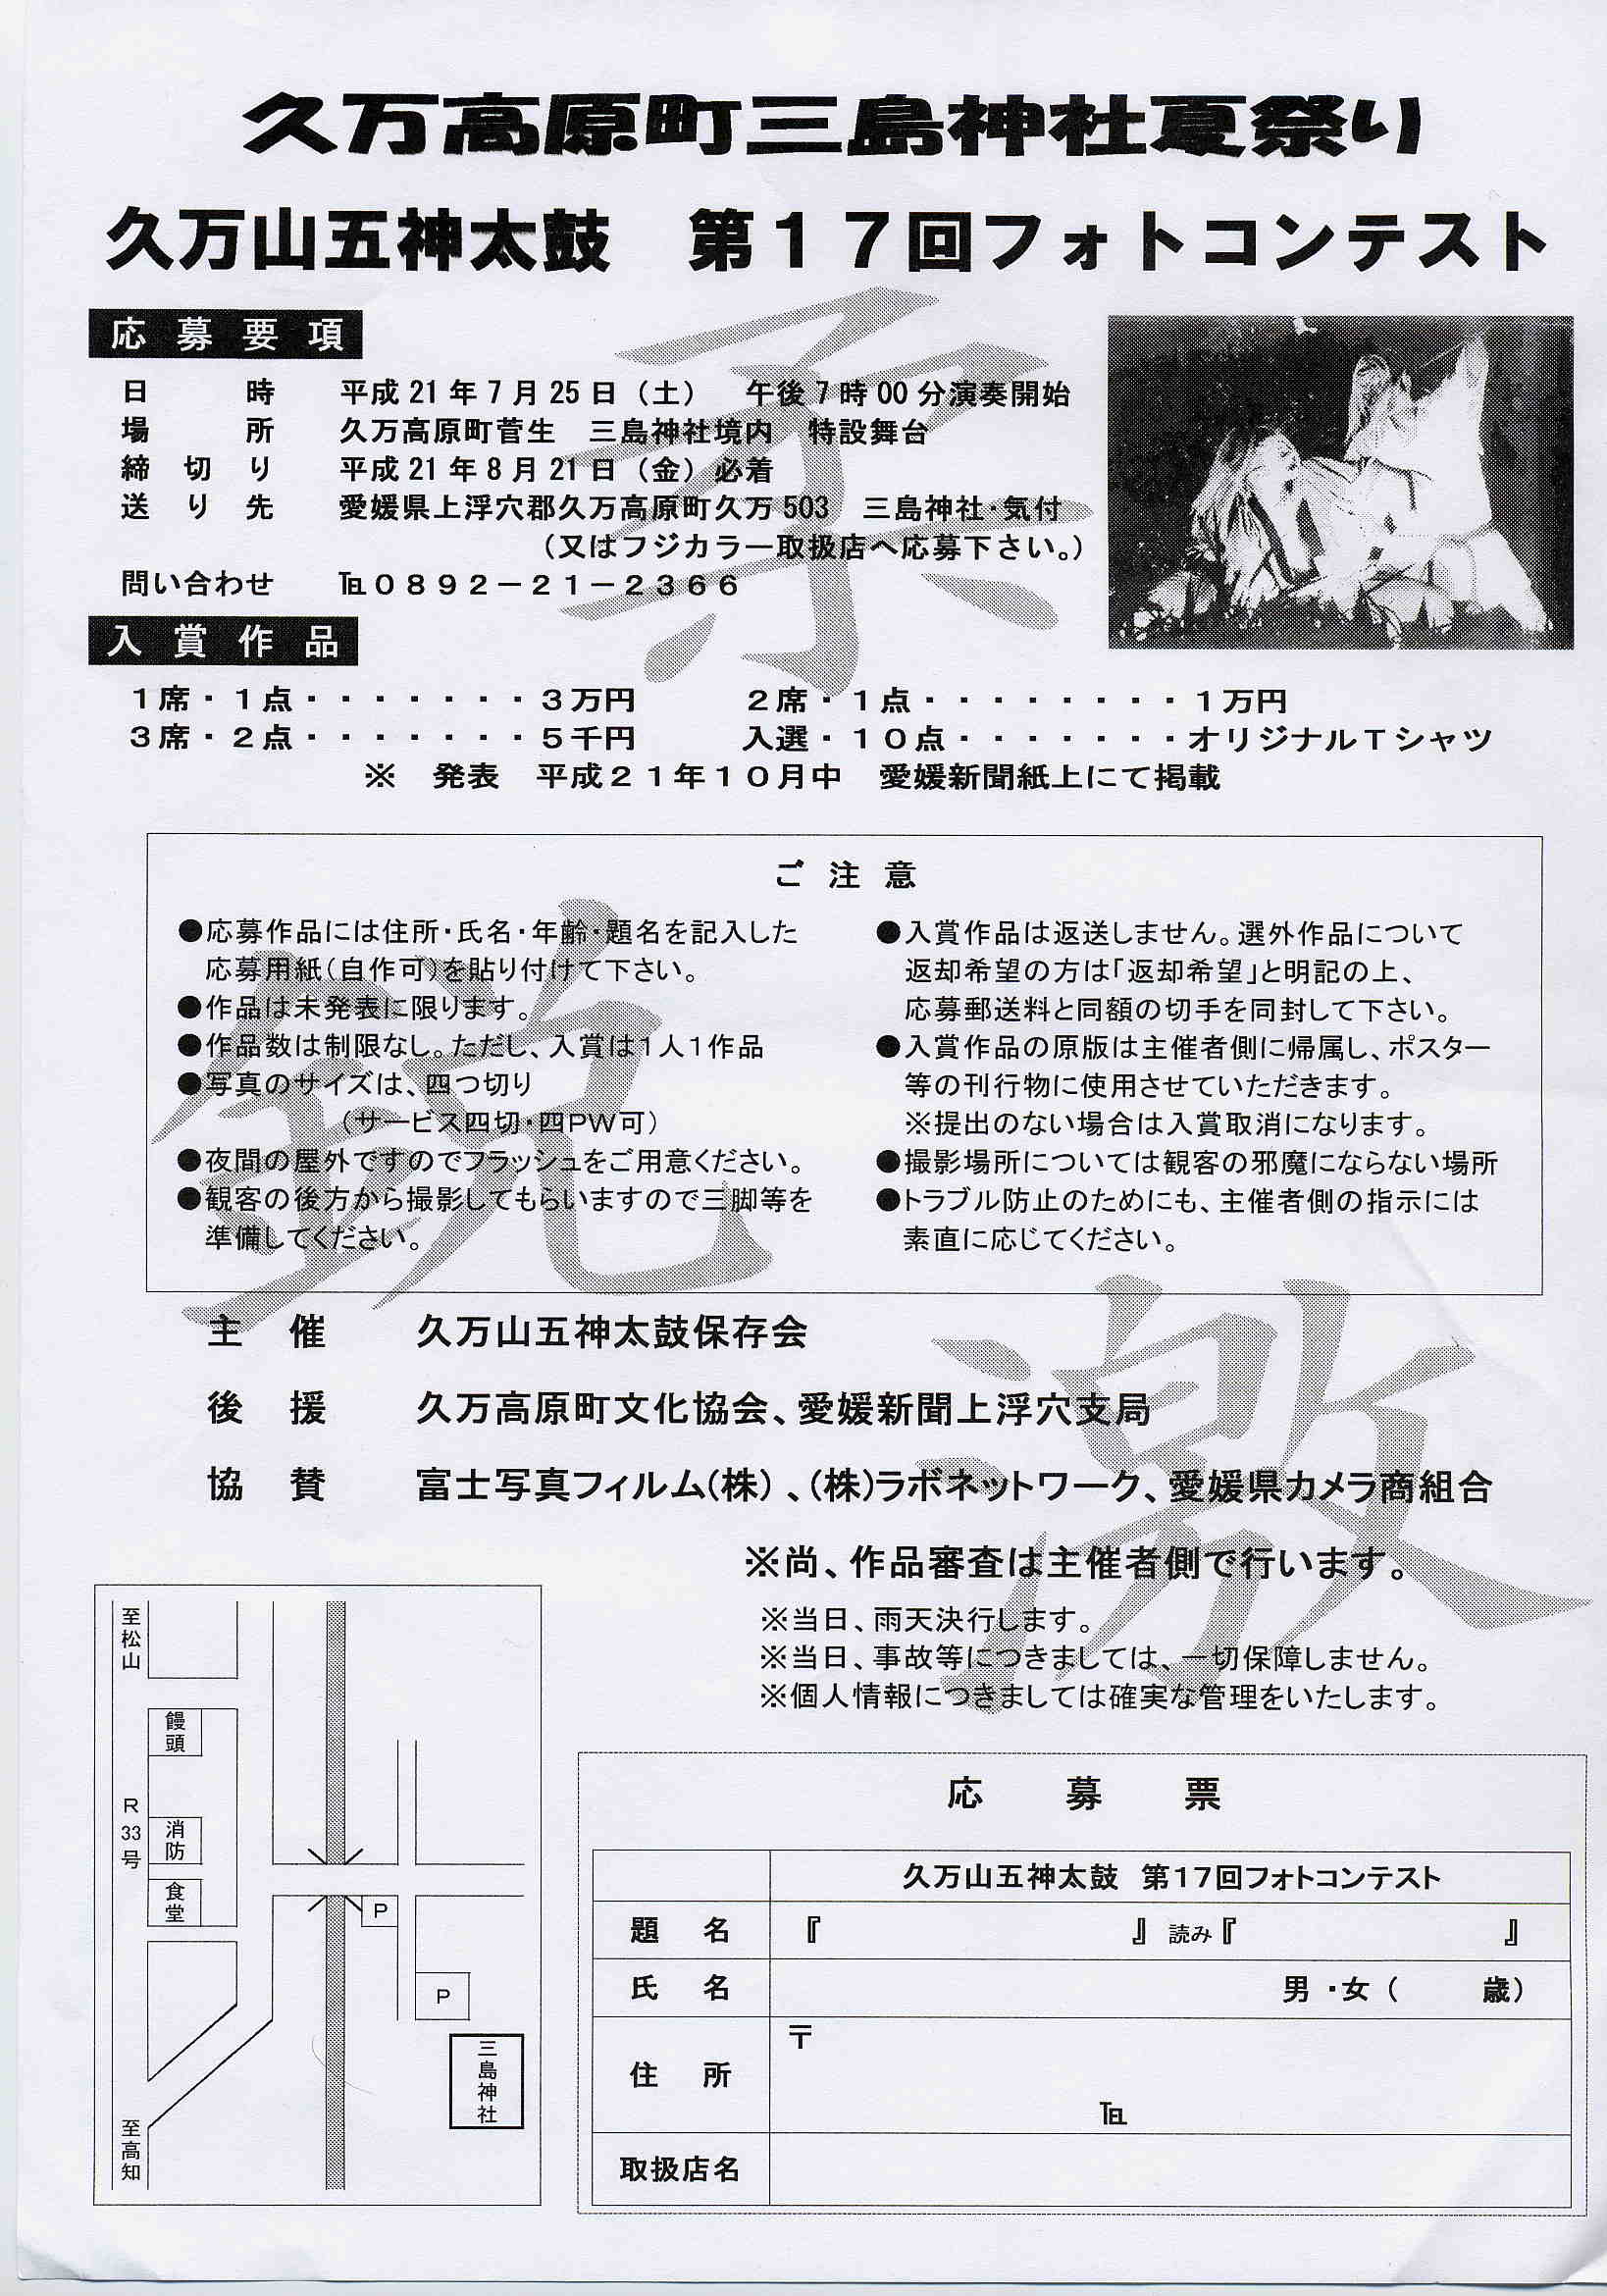 久万高原町三島神社夏祭り
久万山五神太鼓　第１７回フォトコンテスト
応募要項
日時　平成21年7月25日（土）　午後7時00分演奏開始
場所　久万高原町菅生　三島神社境内　特設舞台
締切り　平成21年8月21日（金）必着
送り先　愛媛県上浮穴郡久万高原町久万503　三島神社・気付
（又はフジカラー取扱店へ応募下さい。）
問い合わせ　℡０８９２－２１－２３６６
入賞作品
１席・１点・・・・・・・３万円　２席・１点・・・・・・・・１万円
３席・２点・・・・・・・５千円　入選・１０点・・・・・・・オリジナルＴシャツ
※　発表　平成２１年１０月中　愛媛新聞紙上にて掲載
柔
ご注意
●応募作品には住所・氏名・年齢・題名を記入した
応募用紙（自作可）を貼り付けて下さい。
●作品は未発表に限ります。
●作品数は制限なし。ただし、入賞は１人１作品
●写真のサイズは、四つ切り
（サービス四切・四ＰＷ可）
●夜間の屋外ですのでフラッシュをご用意ください。
●観客の後方から撮影してもらいますので三脚等を
準備してください。
●入賞作品は返送しません。選外作品について
返却希望の方は「返却希望」と明記の上、
応募郵送料と同額の切手を同封して下さい。
●入賞作品の原版は主催者側に帰属し、ポスター
等の刊行物に使用させていただきます。
※提出のない場合は入賞取消になります。
●撮影場所については観客の邪魔にならない場所
●トラブル防止のためにも、主催者側の指示には
素直に応じてください。
鋭
主催　久万山五神太鼓保存会
後援　久万高原町文化協会、愛媛新聞上浮穴支局
協賛　富士写真フィルム（株）、（株）ラボネットワーク、愛媛県カメラ商組合
激
※尚、作品審査は主催者側で行います。
※当日、雨天決行します。
※当日、事故等につきましては、一切保障しません。
※個人情報につきましては確実な管理をいたします。
至松山
饅頭
R33号
消防
食堂
P
P
三島神社
至高知
応募票
久万山五神太鼓　第17回フォトコンテスト
題名　『　』　読み『　』
氏名　男・女（　歳）
住所　〒
℡
取扱店名